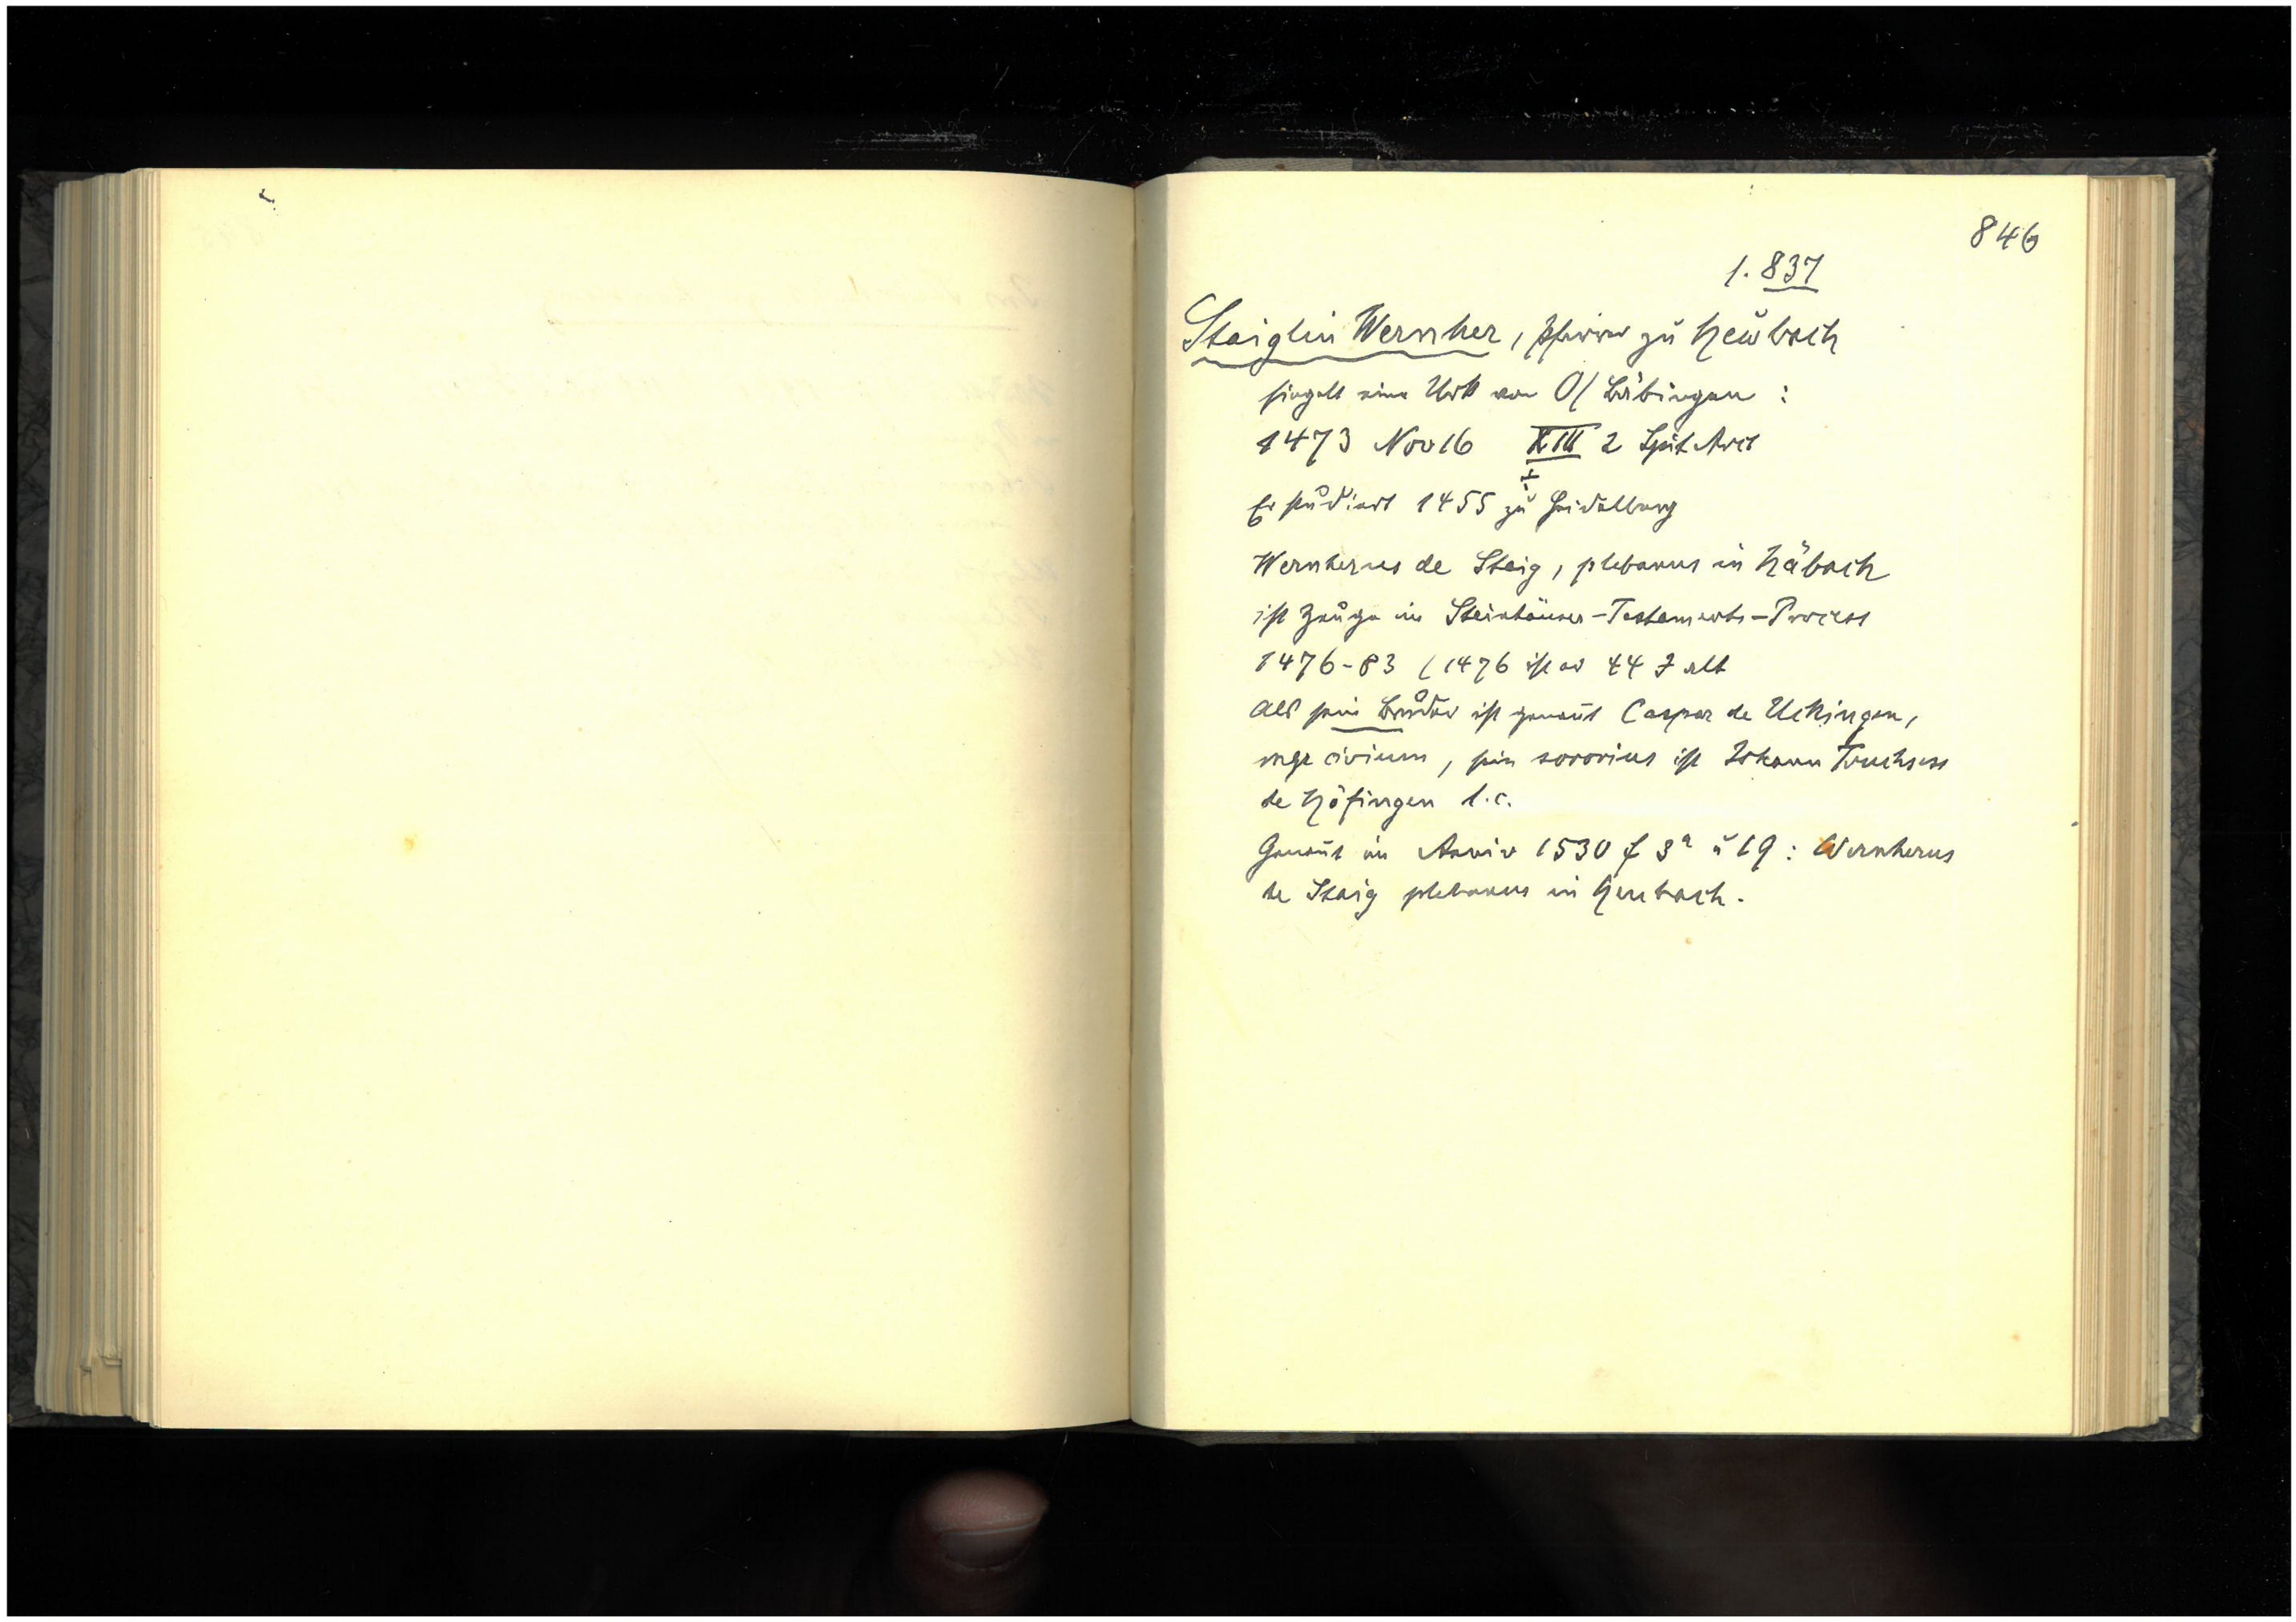 846
1. 837
Staiglin Wernher, Pfarrer zu Heubach
siegelt eine Urk von O/Bäbingen :
1473 Nov 16 XIII 2 Spit Arch
Er studiert 1455 zu Heidelberg
Wernherus de Staig, plebanus in Häbach
ist Zeuge im Steinhäuser-Testaments-Process
1476-83 (1476 ist er 44 J alt
Als sein Bruder ist genañt Caspar de Uckingen,
mgr civium, sein sororius ist Johann Truchsess
de Höfingen l.c.
Genañt im Anniv 1530 f 3a u 19 : Wernherus
de Staig plebanus in Heubach.